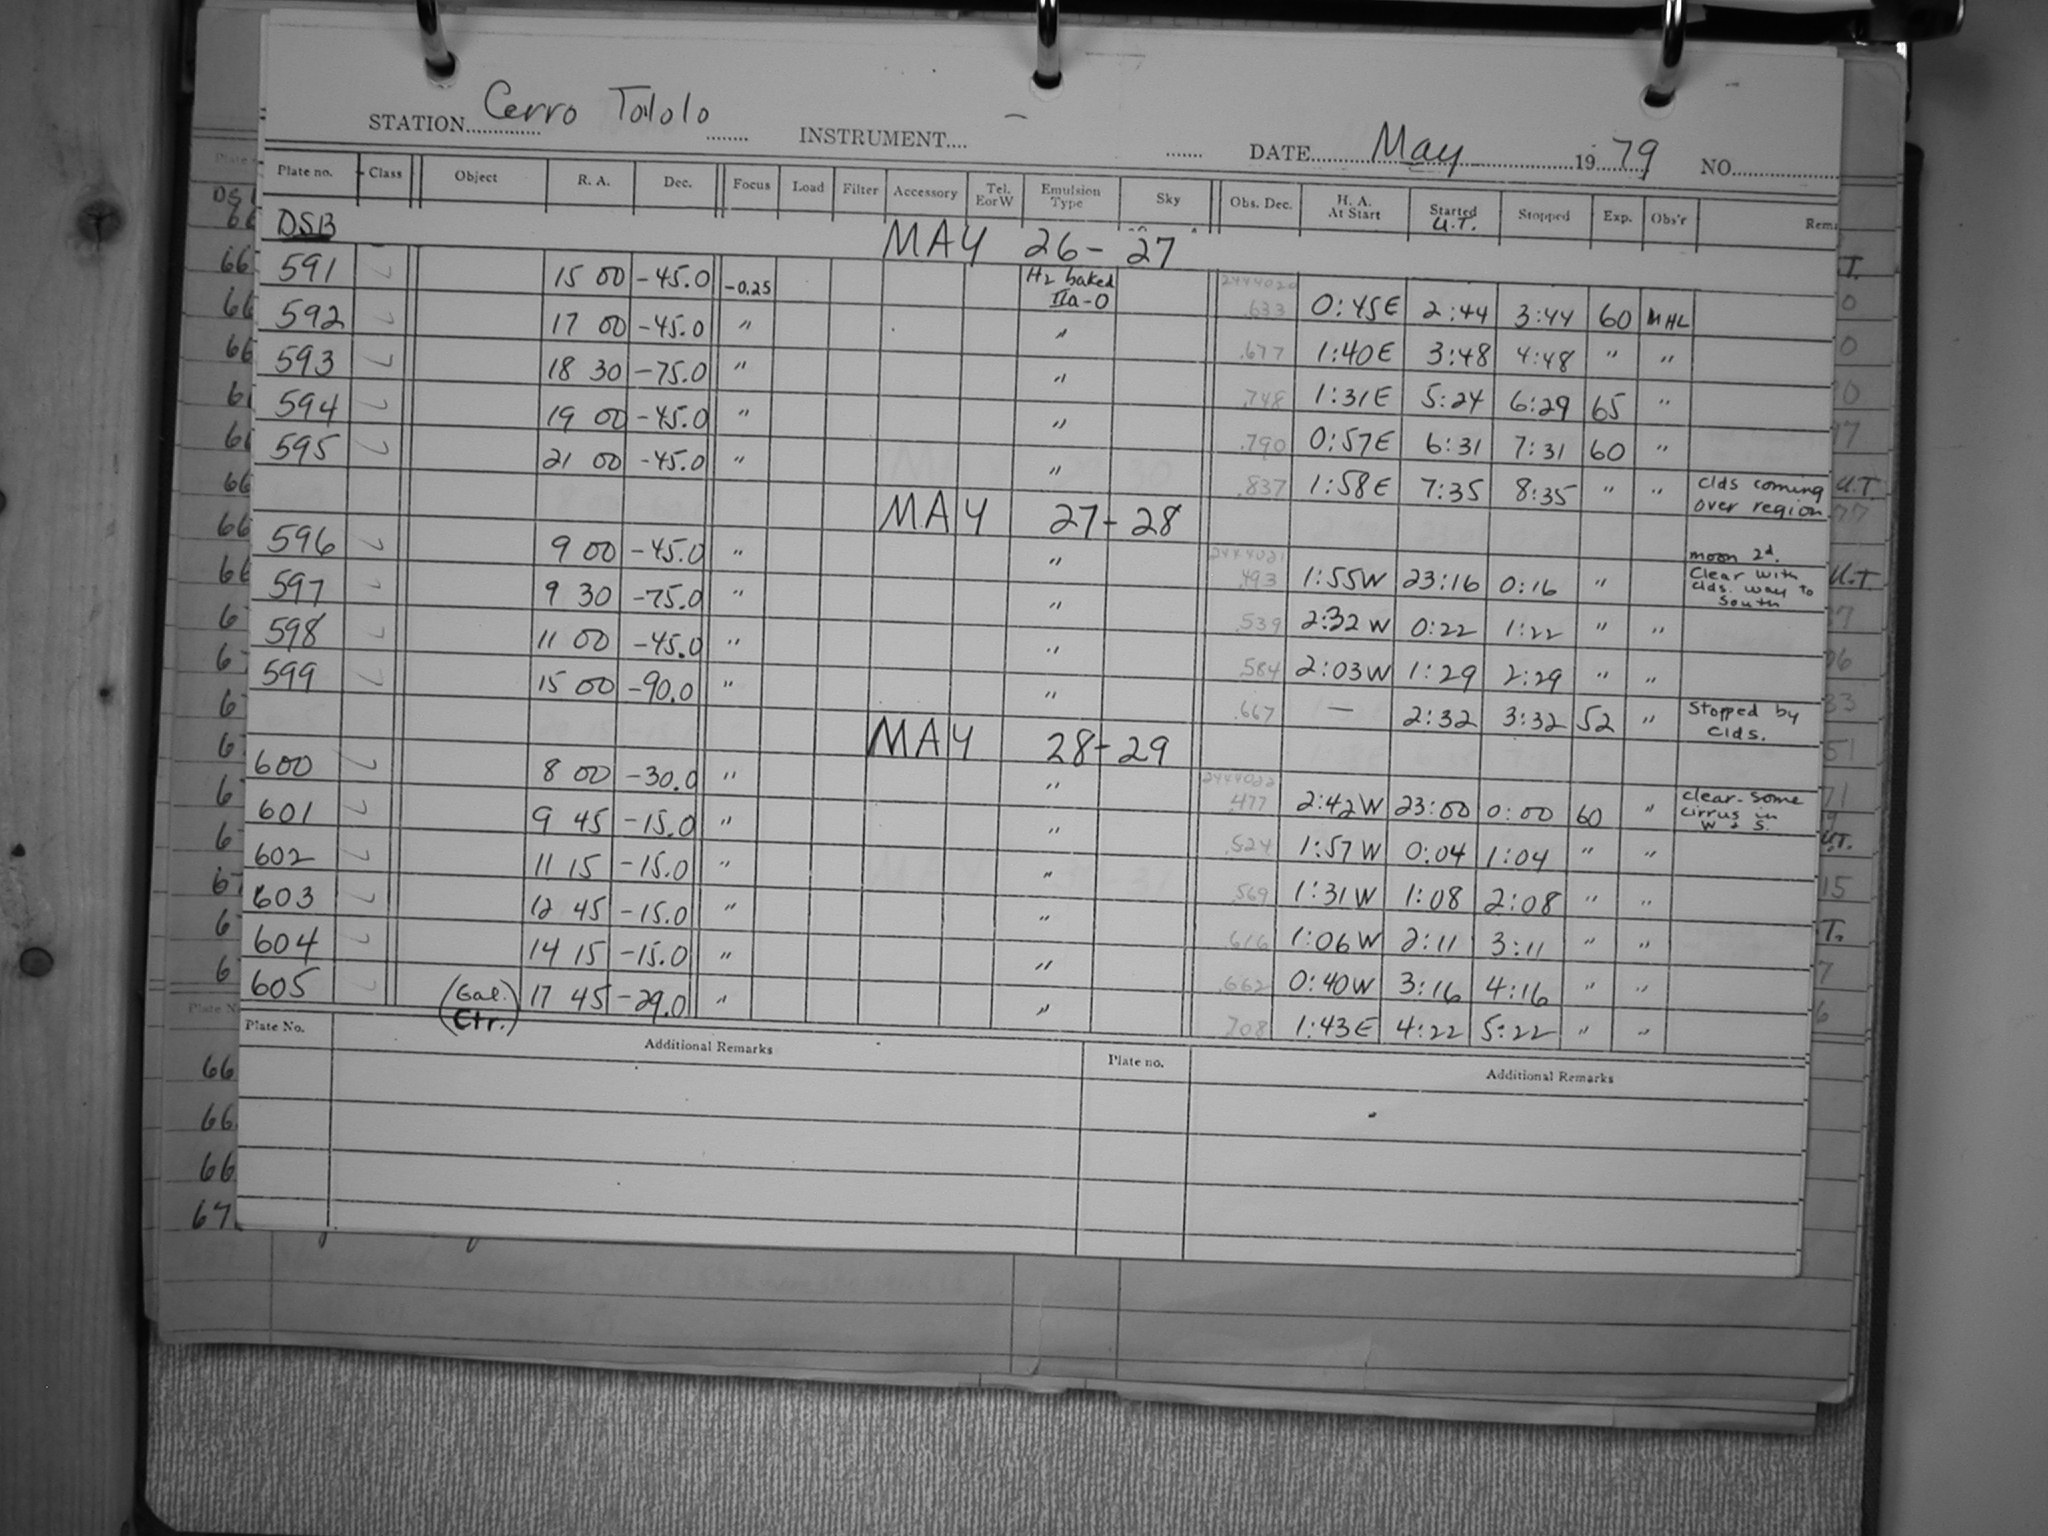 STATION Cerro Tololo INSTRUMENT.... DATE May 19 79 NO.
Plate no. Class Object R. A. Dec. Focus Load Filter Accessory Tel. E or W Emulsion Type Sky Obs. Dec. H. A. At Start Started U.T. Stopped Exp. Obs'r Rem
DSB MAY 26-27
591 15 00 -45.0 -0.25 H2 baked IIa-O 2444020 .633 0:45E 2:44 3:44 60 MHL
592 17 00 -45.0 " " .677 1:40E 3:48 4:48 " "
593 18 30 -75.0 " " .748 1:31E 5:24 6:29 65 "
594 19 00 -45.0 " " .790 0:57E 6:31 7:31 60 "
595 21 00 -45.0 " " .837 1:58E 7:35 8:35 " " clds coming over region
MAY 27-28
596 9 00 -45.0 " " 2444021 .493 1:55W 23:16 0:16 " moon 2d. Clear with clds. way to South
597 9 30 -75.0 " " .539 2:32W 0:22 1:22 " "
598 11 00 -45.0 " " .584 2:03W 1:29 2:29 " "
599 15 00 -90.0 " " .667 — 2:32 3:32 52 " Stopped by clds.
MAY 28-29
600 8 00 -30.0 " " 2444022 .477 2:42W 23:00 0:00 60 " clear-some cirrus in W + S.
601 9 45 -15.0 " " .524 1:57W 0:04 1:04 " "
602 11 15 -15.0 " " .569 1:31W 1:08 2:08 " "
603 12 45 -15.0 " " .616 1:06W 2:11 3:11 " "
604 14 15 -15.0 " " .662 0:40W 3:16 4:16 " "
605 (Gal. Ctr.) 17 45 -29.0 " " .708 1:43E 4:22 5:22 " "
Plate No. Additional Remarks Plate no. Additional Remarks